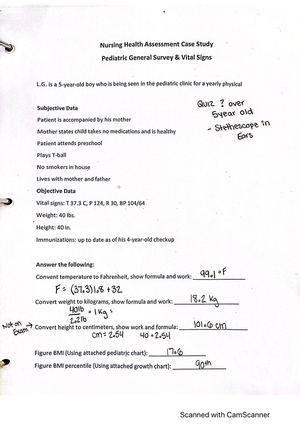 Nursing Health Assessment Case Study
Pediatric General Survey & Vital Signs
L.G. is a 5-year-old boy who is being seen in the pediatric clinic for a yearly physical
Quiz ? over
5year old
- Stethescope in
Ears
Subjective Data
Patient is accompanied by his mother
Mother states child takes no medications and is healthy
Patient attends preschool
Plays T-ball
No smokers in house
Lives with mother and father
Objective Data
Vital signs: T 37.3 C, P 124, R 30, BP 104/64
Weight: 40 lbs.
Height: 40 in.
Immunizations: up to date as of his 4-year-old checkup
Answer the following:
Convent temperature to Fahrenheit, show formula and work: 99.1 °F
F = (37.3)1.8 + 32
Convert weight to kilograms, show formula and work: 18.2 kg
40lb
2.2lb • 1kg =
Not on Exam → Convert height to centimeters, show work and formula: 101.6 cm
cm = 2.54 40 • 2.54
Figure BMI (Using attached pediatric chart): 17.6
Figure BMI percentile (Using attached growth chart): 90th
Scanned with CamScanner